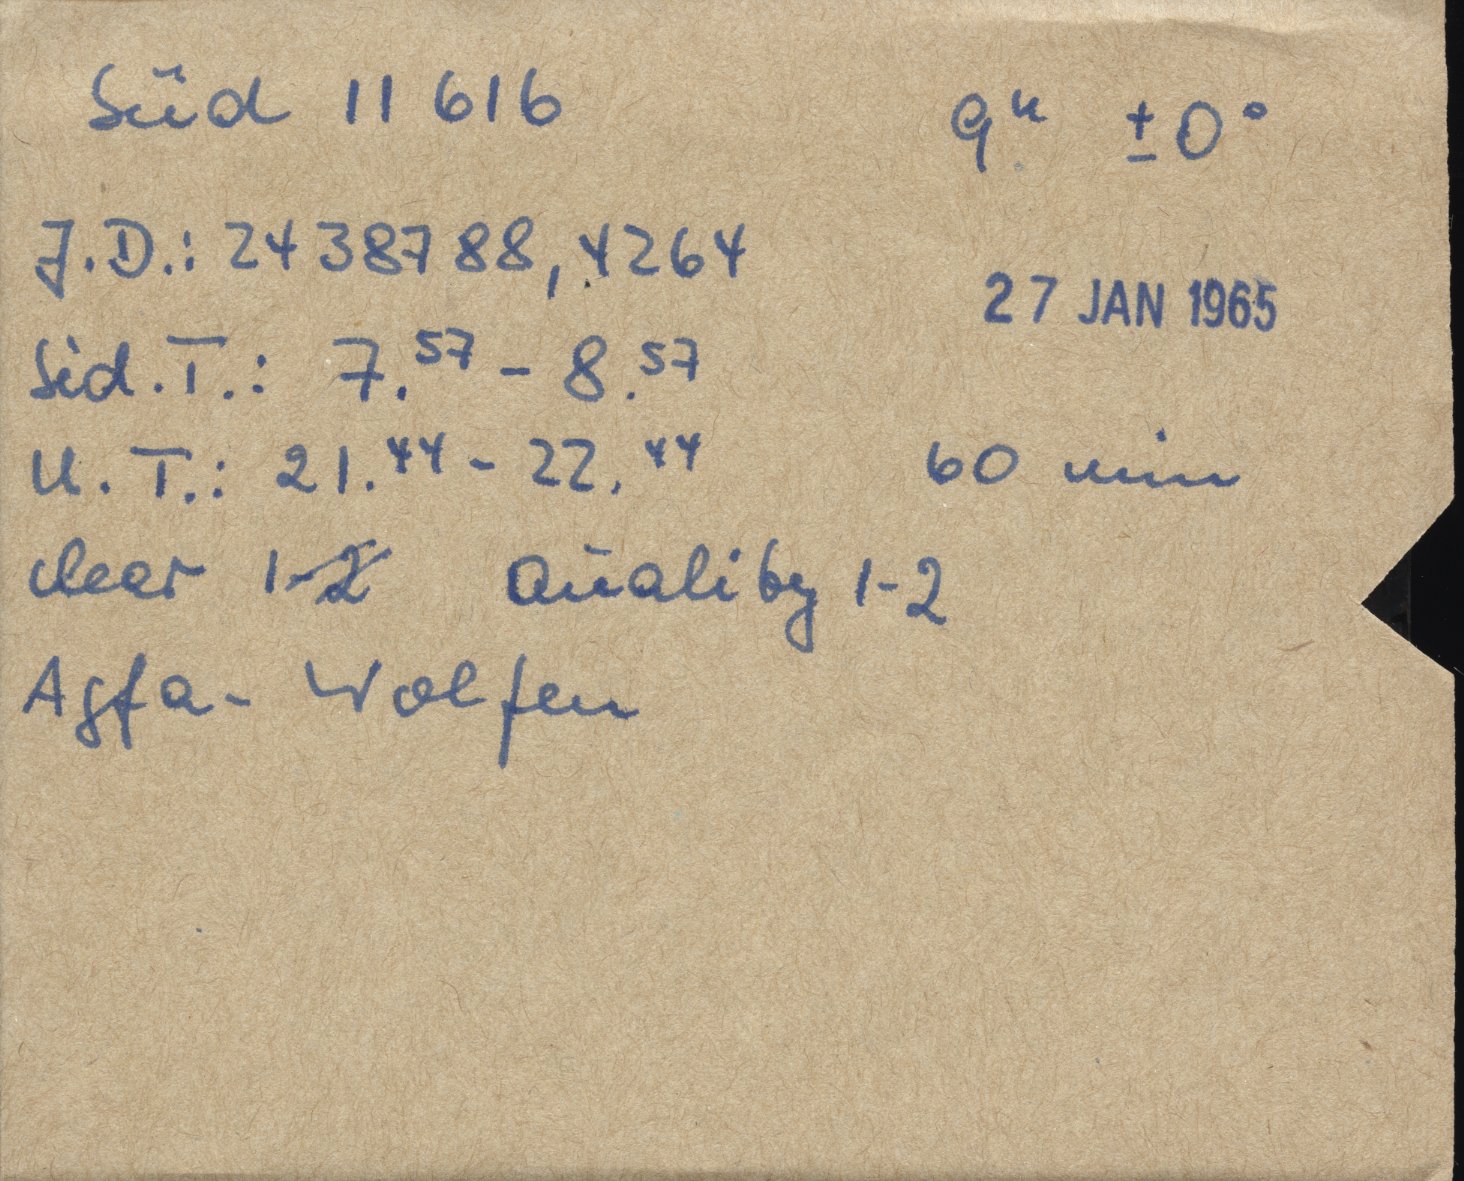 Süd 11 616 9ʰ ±0°
J.D.: 24 387 88,4264
27 JAN 1965
Sid.T.: 7.⁵⁷ - 8.⁵⁷
U.T.: 21.⁴⁴ - 22.⁴⁴ 60 min
clear 1-2 Quality 1-2
Agfa-Wolfen